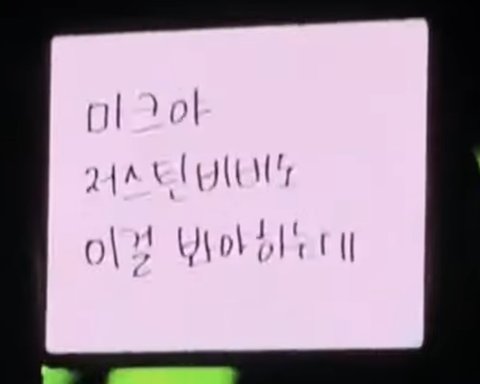 미크야
저스틴비버도
이걸 봐야하는데